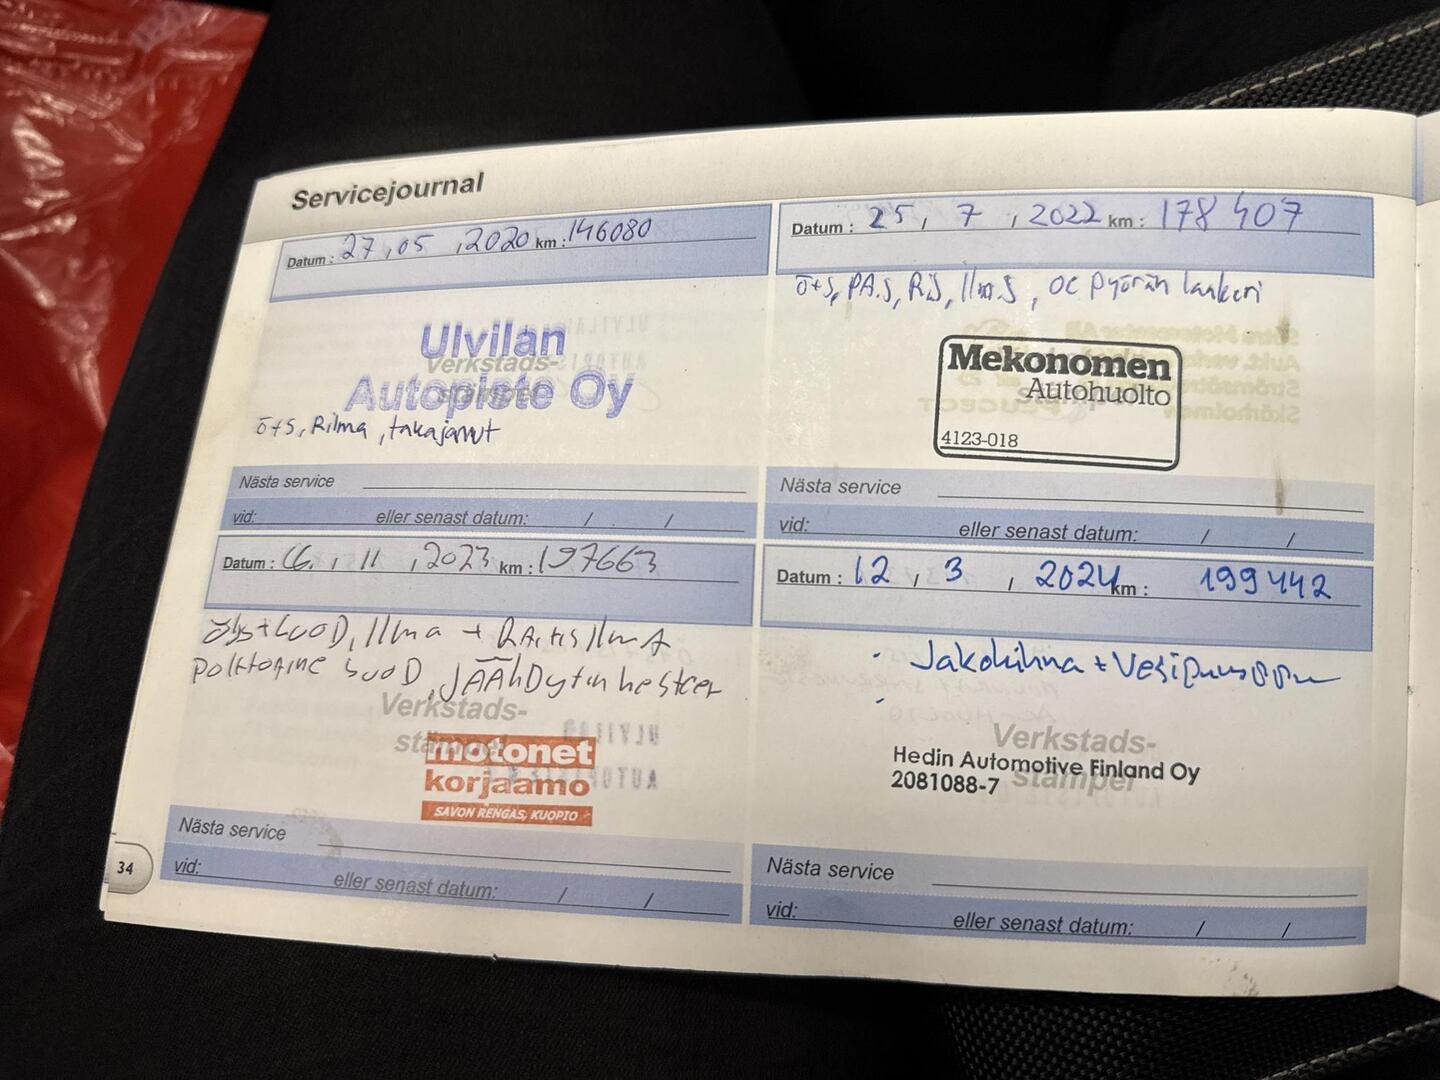 Servicejournal
Datum : 27 , 05 , 2020 km : 146080
Ulvilan
Verkstads-
Autopiste Oy
stämpel
ö+s, Rilma, takajarrut
Nästa service
vid: eller senast datum: / /
Datum : 25 , 7 , 2022 km : 178 407
ö+s, PA.S, R.S, Ilm.S, oc pyörän laakeri
Mekonomen
Autohuolto
4123-018
Nästa service
vid: eller senast datum: / /
Datum : 11 , 2023 km : 197663
Ilma + RAitisIlmA
suoD, jÄÄhDytin
Verkstads-
stämpel
motonet
korjaamo
SAVON RENGAS, KUOPIO
Nästa service
vid: eller senast datum: / /
Datum : 12 , 3 , 2024 km : 199 442
Jakohihna + Vesipumppu
Verkstads-
stämpel
Hedin Automotive Finland Oy
2081088-7
Nästa service
vid: eller senast datum: / /
34